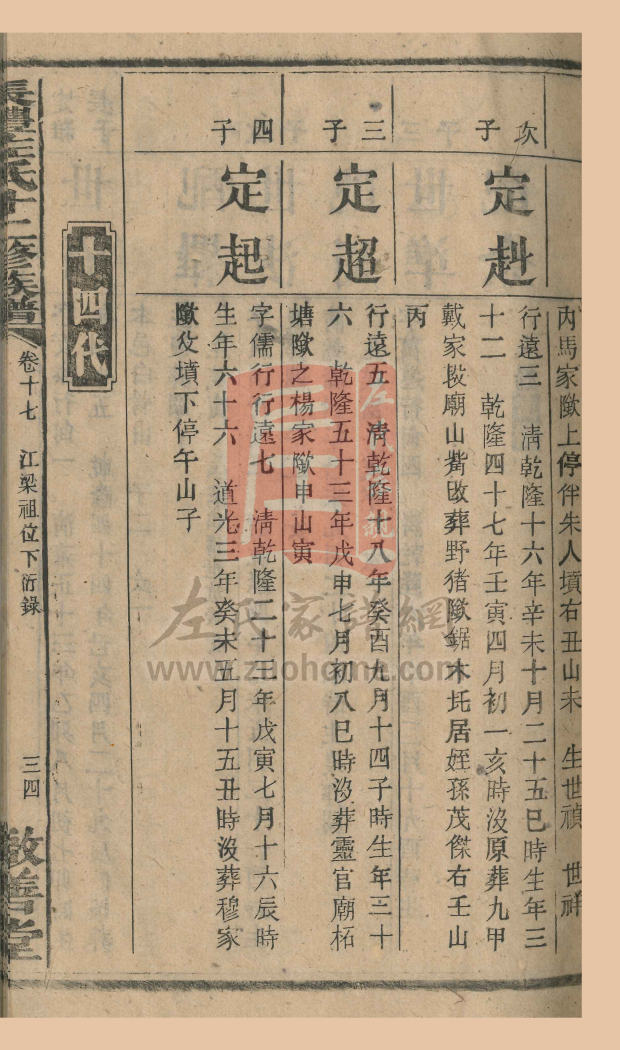 內馬家𡒄上停伴朱人墳右丑山未　生世禎　世祥
次子
定赳
行遠三　清乾隆十六年辛未十月二十五巳時生年三
十二　乾隆四十七年壬寅四月初一亥時沒原葬九甲
戴家段廟山觜改葬野猪𡒄鋸木坵居姪孫茂傑右壬山
丙
三子
定超
行遠五　清乾隆十八年癸酉九月十四子時生年三十
六　乾隆五十三年戊申七月初八巳時沒葬靈官廟柘
塘𡒄之楊家𡒄申山寅
四子
定起
字儒行行遠七　清乾隆二十三年戊寅七月十六辰時
生年六十六　道光三年癸未五月十五丑時沒葬穆家
𡒄父墳下停午山子
十四代
左氏十二修族譜
卷十七　江梁祖位下衍錄
三四
敬善堂
左氏家譜網
www.zuohome.com